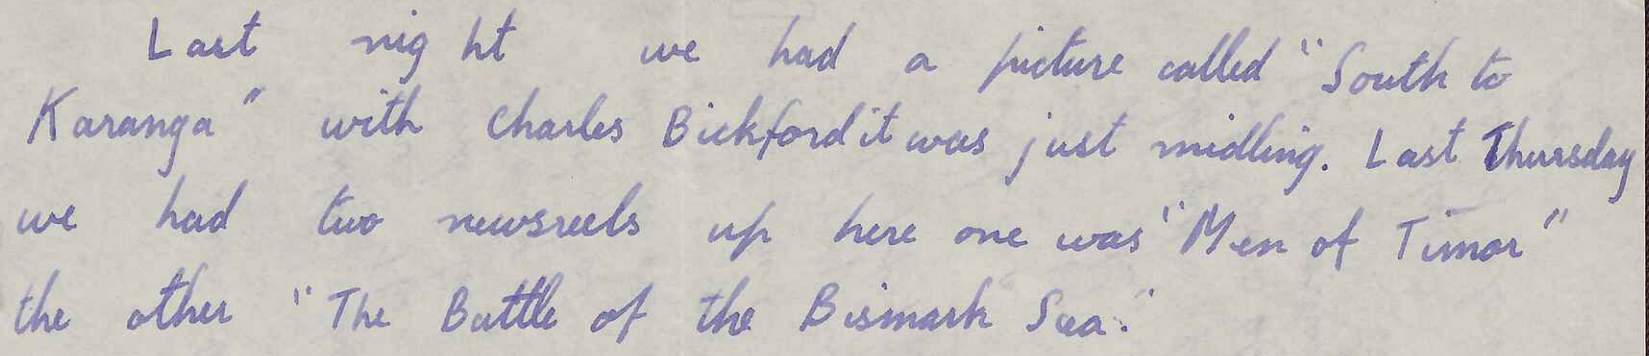 Last night we had a picture called "South to
Karanga" with Charles Bickford it was just midling. Last Thursday
we had two newsreels up here one was "Men of Timor"
the other "The Battle of the Bismark Sea."